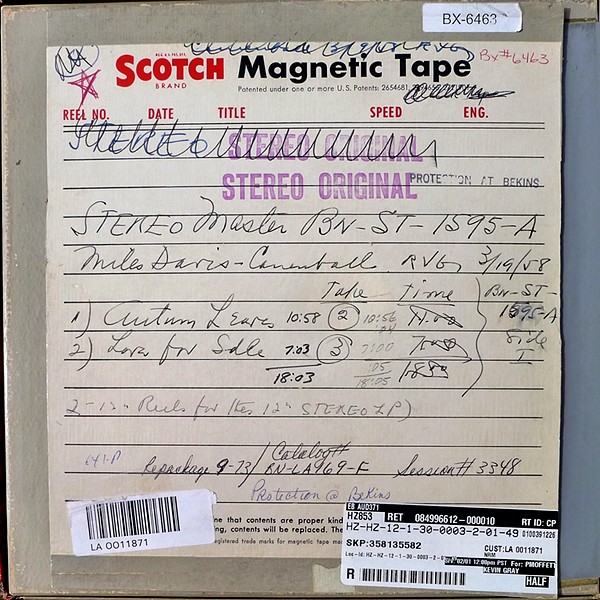 BX-6463
Bx#6463
SCOTCH Magnetic Tape
BRAND
Patented under one or more U.S. Patents: 2654681,
REEL NO. DATE TITLE SPEED ENG.
STEREO
STEREO ORIGINAL
STEREO ORIGINAL
PROTECTION AT BEKINS
STEREO Master BN-ST-1595-A
Miles Davis-Cannonball RVG 3/19/58
Take time BN-ST-
1) Autum Leaves 10:58 2 10:56 1595-A
2) Love for Sale 7:03 3 7:00 Side
18:03 18:05 I
2-12" Reels for this 12" STEREO LP)
Catalog#
Repackage 9-73/ BN-LA969-F Session# 3348
Protection @ Bekins
ne that contents are proper kind
ng, contents will be replaced. The
egistered trade marks for magnetic tape
LA 0011871
EB AUD371
HZ653 RET 084996612-000010 RT ID: CP
HZ-HZ-12-1-30-0003-2-01-49 0100391226
SKP:358135582 CUST:LA 0011871
NRM
02/01 12:00pm PST For: PMOFFETT
KEVIN GRAY
R HALF